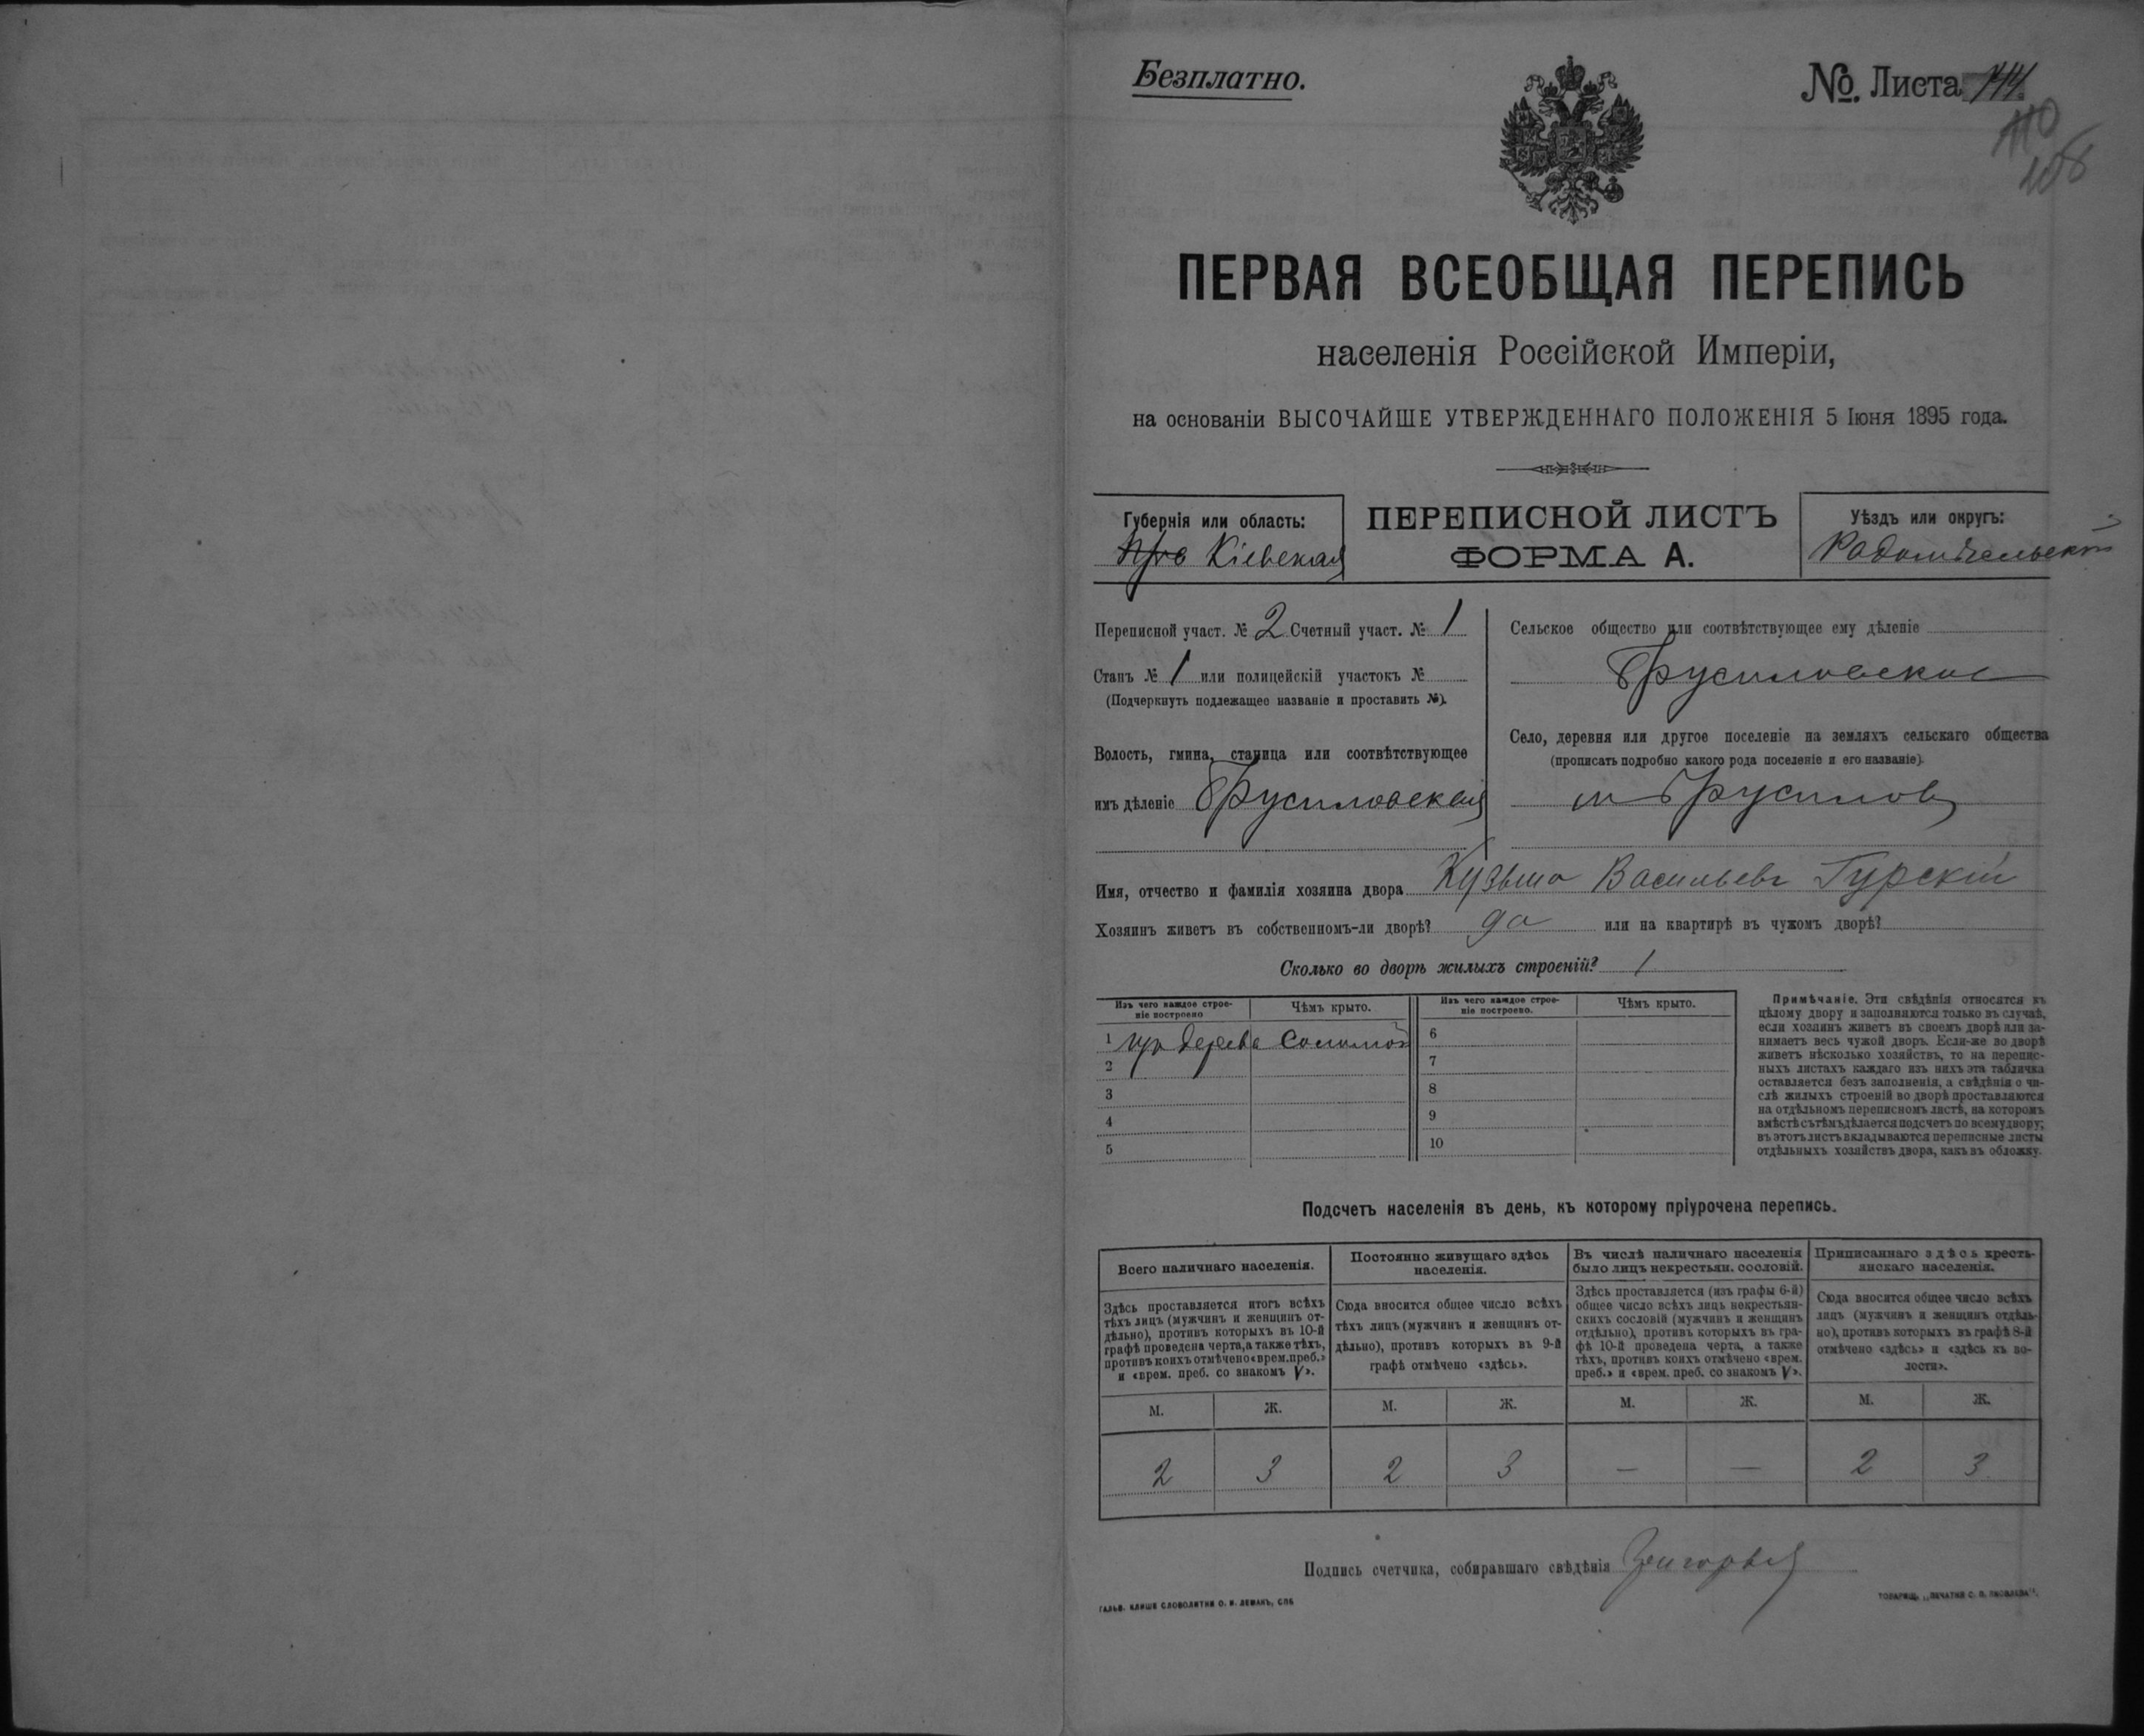 Безплатно.
№. Листа
110
108
ПЕРВАЯ ВСЕОБЩАЯ ПЕРЕПИСЬ
населенія Россійской Имперіи,
на основаніи ВЫСОЧАЙШЕ УТВЕРЖДЕННАГО ПОЛОЖЕНІЯ 5 Іюня 1895 года.
Губернія или область:
Кіевская
ПЕРЕПИСНОЙ ЛИСТЪ
ФОРМА А.
Уѣздъ или округъ:
Радомысльскій
Переписной участ. № 2 Счетный участ. № 1
Станъ № 1 или полицейскій участокъ №
(Подчеркнуть подлежащее названіе и проставить №).
Волость, гмина, станица или соотвѣтствующее
имъ дѣленіе Брусиловская
Сельское общество или соотвѣтствующее ему дѣленіе
Брусиловское
Село, деревня или другое поселеніе на земляхъ сельскаго общества
(прописать подробно какого рода поселеніе и его названіе).
м Брусиловъ
Имя, отчество и фамилія хозяина двора Кузьма Васильевъ Гурскій
Хозяинъ живетъ въ собственномъ-ли дворѣ? да или на квартирѣ въ чужомъ дворѣ?
Сколько во дворѣ жилыхъ строеній? 1
Изъ чего каждое строе-
ніе построено
Чѣмъ крыто.
Изъ чего каждое строе-
ніе построено.
Чѣмъ крыто.
1 изъ дерева соломой
2
3
4
5
6
7
8
9
10
Примѣчаніе. Эти свѣдѣнія относятся къ
цѣлому двору и заполняются только въ случаѣ,
если хозяинъ живетъ въ своемъ дворѣ или за-
нимаетъ весь чужой дворъ. Если-же во дворѣ
живетъ нѣсколько хозяйствъ, то на перепис-
ныхъ листахъ каждаго изъ нихъ эта табличка
оставляется безъ заполненія, а свѣдѣнія о чи-
слѣ жилыхъ строеній во дворѣ проставляются
на отдѣльномъ переписномъ листѣ, на которомъ
вмѣстѣ съ тѣмъ дѣлается подсчетъ по всему двору;
въ этотъ листъ вкладываются переписные листы
отдѣльныхъ хозяйствъ двора, какъ въ обложку.
Подсчетъ населенія въ день, къ которому пріурочена перепись.
Всего наличнаго населенія.
Постоянно живущаго здѣсь
населенія.
Въ числѣ наличнаго населенія
было лицъ некрестьян. сословій.
Приписаннаго здѣсь кресть-
янскаго населенія.
Здѣсь проставляется итогъ всѣхъ
тѣхъ лицъ (мужчинъ и женщинъ от-
дѣльно), противъ которыхъ въ 10-й
графѣ проведена черта, а также тѣхъ,
противъ коихъ отмѣчено «врем. преб.»
и «врем. преб. со знакомъ V».
Сюда вносится общее число всѣхъ
тѣхъ лицъ (мужчинъ и женщинъ от-
дѣльно), противъ которыхъ въ 9-й
графѣ отмѣчено «здѣсь».
Здѣсь проставляется (изъ графы 6-й)
общее число всѣхъ лицъ некрестьян-
скихъ сословій (мужчинъ и женщинъ
отдѣльно), противъ которыхъ въ гра-
фѣ 10-й проведена черта, а также
тѣхъ, противъ коихъ отмѣчено «врем.
преб.» и «врем. преб. со знакомъ V».
Сюда вносится общее число всѣхъ
лицъ (мужчинъ и женщинъ отдѣль-
но), противъ которыхъ въ графѣ 8-й
отмѣчено «здѣсь» и «здѣсь къ во-
лости».
М. Ж. М. Ж. М. Ж. М. Ж.
2 3 2 3 — — 2 3
Подпись счетчика, собиравшаго свѣдѣнія
ГАЛЬВ. КЛИШЕ СЛОВОЛИТНИ О. И. ЛЕМАНЪ, СПБ
ТОВАРИЩ. „ПЕЧАТНЯ С. П. ЯКОВЛЕВА".